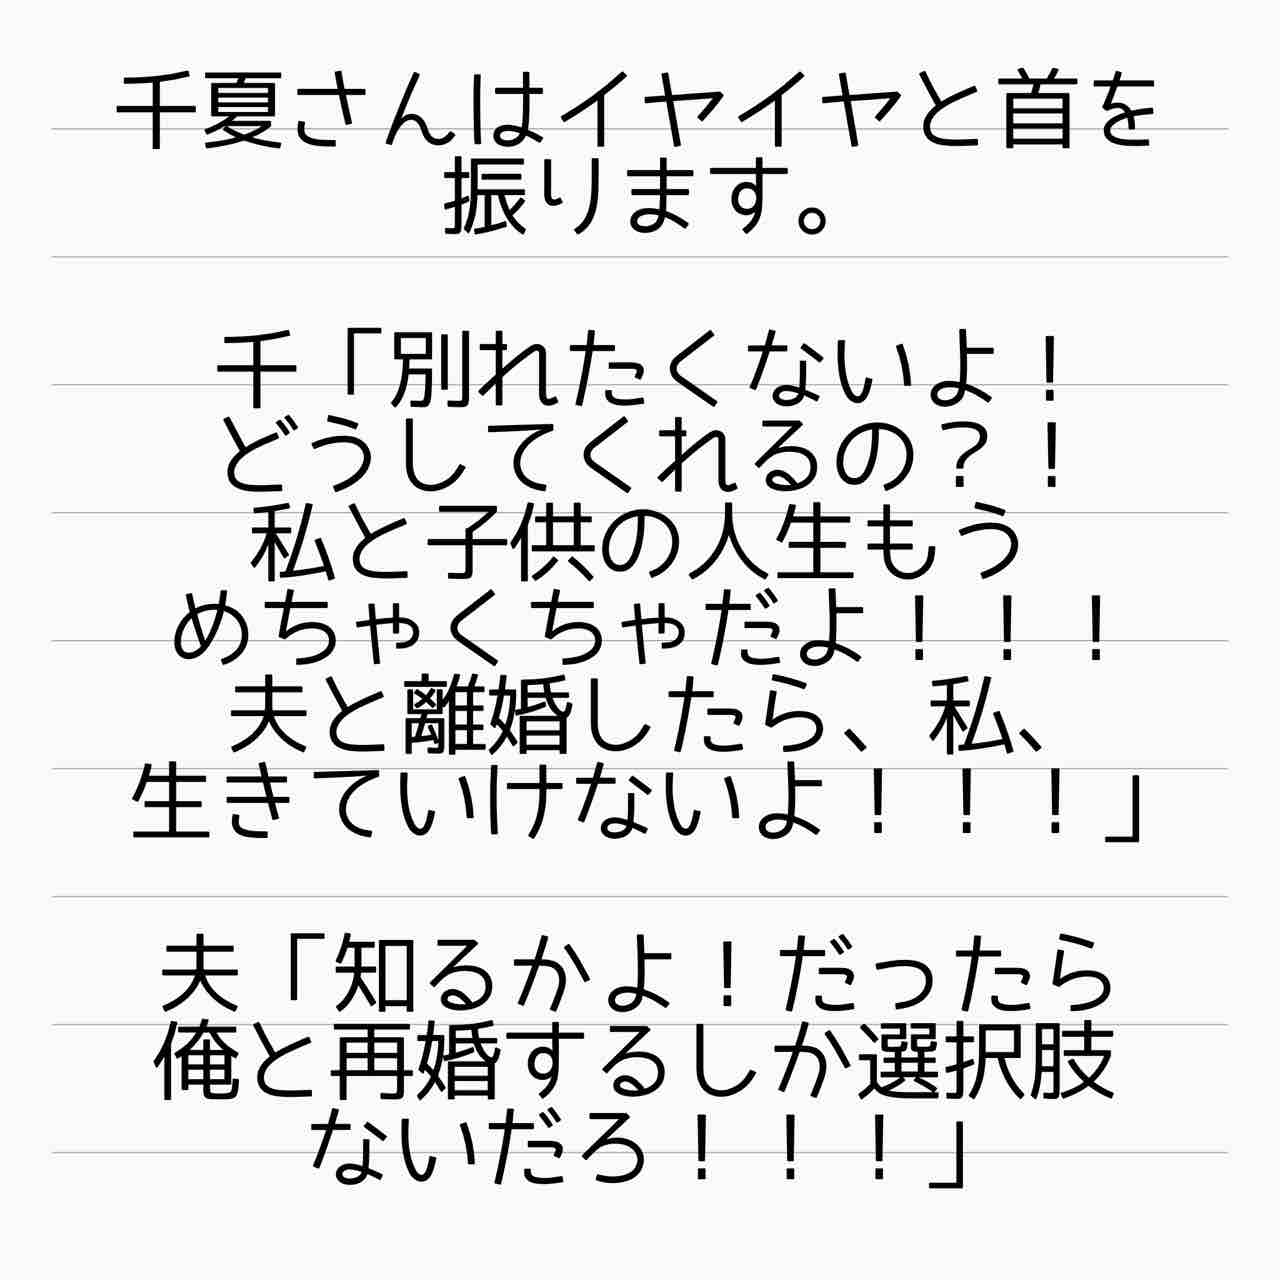 千夏さんはイヤイヤと首を
振ります。
千「別れたくないよ！
どうしてくれるの？！
私と子供の人生もう
めちゃくちゃだよ！！！
夫と離婚したら、私、
生きていけないよ！！！」
夫「知るかよ！だったら
俺と再婚するしか選択肢
ないだろ！！！」